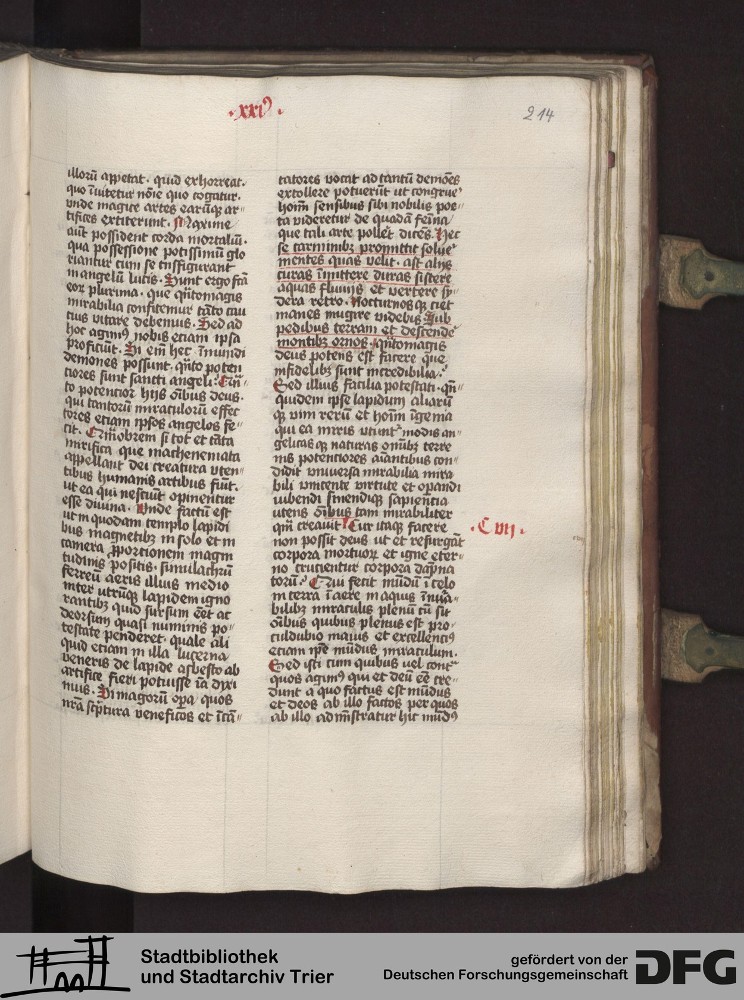 ·xxiꝰ·
214
illorū appetat · quid exhorreat ·
quo īuitetur noīe quo cogatur ·
vnde magice artes earūqꝫ ar〃
tifices extiterunt · Maxime
aūt possident corda mortaliū ·
qua possessione potissimū glo
riantur cum se trāsfigurant
in angelū lucis · Sunt ergo fcā
eor plurima · que qūtomagis
mirabilia confitemur tāto cau
tius vitare debemus · Sed ad
hoc agimꝰ nobis etiam ipsa
proficiūt · Si em̄ hec īmundi
demones possunt · qūto poten
tiores sunt sancti angeli · Qūn〃
to potencior hijs oībus deus ·
qui tantorū miraculorū effec
tores etiam ipsos angelos fe〃
cit · Q̄mobrem si tot et tāta
mirifica que mathenemata
appellant dei creatura vten〃
tibus humanis artibus fiūt ·
ut ea qui nesciūt opinentur
esse diuina · Vnde factū est
ut in quodam templo lapidi
bus magnetibꝫ in solo et in
camera ꝓportionem magni
tudinis positis · simulachrū
ferreū aeris illius medio
inter vtrūqꝫ lapidem igno
rantibꝫ quid sursum eēt ac
deorsum quasi numinis po〃
testate penderet · quale ali
quid etiam in illa lucerna
veneris de lapide asbesto ab
artifice fieri potuisse iā dixi
mus · Si magorū oꝑa quos
nrā scpͥtura veneficos et īcā〃
tatores vocat ad tantū demōes
extollere potuerūt ut congrue〃
hom̄ sensibus sibi nobilis poe〃
ta videretur de quadā feīna
que tali arte pollet dicēs · Hec
se carminibꝫ promittit solue〃
mentes quas velit · ast alijs
curas īmittere duras sistere
aquas fluuijs et vertere sy〃
dera retro · Nocturnosqꝫ ciet
manes mugire videbis sub
pedibus terram et descende〃
montibꝫ ornos · qūtomagis
deus potens est facere que
infidelibꝫ sunt incredibilia ·
Sed illius facilia potestati · qn̄〃
quidem ipse lapidum aliarū
qꝫ vim rerū et hom̄ īgenia
qui ea miris vtunt modis an〃
gelicas qꝫ naturas omībꝫ terre
nis potenciores aīantibus con〃
didit vniuersa mirabilia mira
bili vincente virtute et oꝑandi
iubendi sinendiqꝫ sapientia
utens oībus tam mirabiliter
qm̄ creauit · Cur itaqꝫ facere
non possit deus ut et resurgāt
corpora mortuoꝝ et igne eter〃
no crucientur corpora dapna
torū · Qui fecit mūdū ī celo
in terra ī aere in aquis īnūa〃
bilibꝫ miraculis plenū cū sit
oībus quibus plenus est pro〃
culdubio maius et excellenciꝰ
etiam ipe mūdus miraculum ·
Sed isti cum quibus vel cont〃
quos agimꝰ qui et deū eē cre〃
dunt a quo factus est mūdus
et deos ab illo factos per quos
ab illo admīstratur hic mūdꝰ
·C vij·
Stadtbibliothek
und Stadtarchiv Trier
gefördert von der
Deutschen Forschungsgemeinschaft
DFG